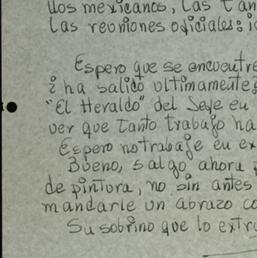 dos mexicanos, las tan
las reuniones oficiales: i
Espero que se encuentre
¿ha salido ultimamente
"El Heraldo" del Jeye en
ver que tanto trabajo ha
Espero no trabaje en ex
Bueno, salgo ahora
de pintura, no sin antes
mandarle un abrazo co
Su sobrino que lo extr